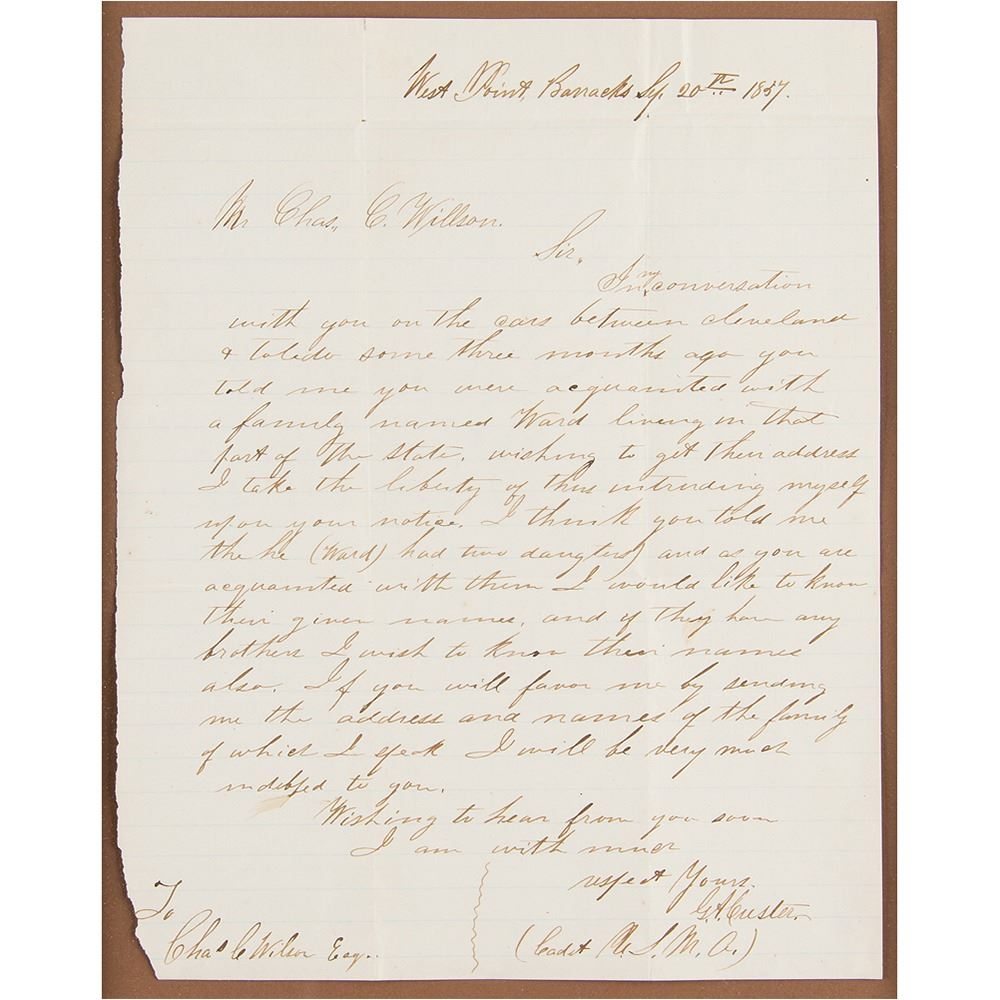 West Point, Barracks Sep. 20th 1857.
Mr Chas., C. Willson.
Sir,
In my conversation
with you on the cars between cleveland
& toledo some three months ago you
told me you were acquanited with
a family named Ward living in that
part of the state. wishing to get their address
I take the liberty of thus intruding myself
upon your notice. I think you told me
the he (Ward) had two daugters) and as you are
acquanited with them I would like to know
their given names, and if they have any
brothers I wish to know their names
also. If you will favor me by sending
me the address and names of the family
of which I speak I will be very much
indebted to you.
Wishing to hear from you soon
I am with much
respect Yours.
G.A. Custer,
(Cadet U. S. M. A.)
To
Chas C Wilson Esq..